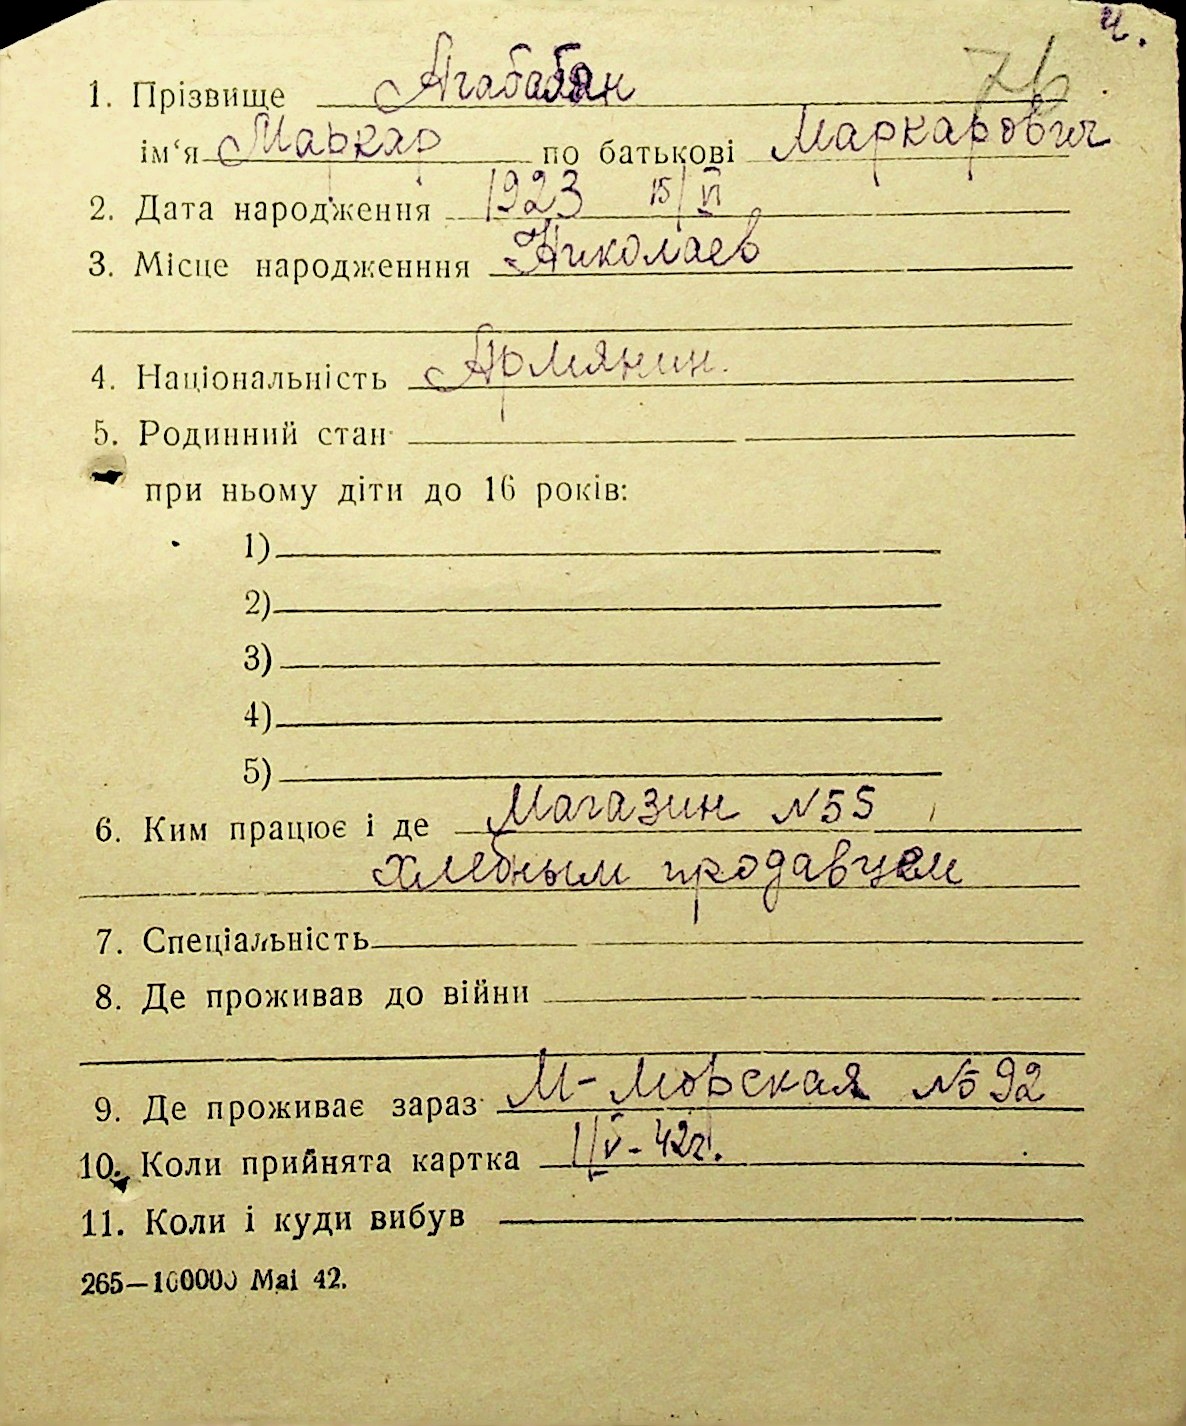 ч.
76
1. Прізвище Агабабян
ім‘я Маркар по батькові Маркарович
2. Дата народження 1923 15/VI
3. Місце народженння Николаев
4. Національність Армянин.
5. Родинний стан
при ньому діти до 16 років:
1)
2)
3)
4)
5)
6. Ким працює і де Магазин N55
хлебным продавцем
7. Спеціальність
8. Де проживав до війни
9. Де проживає зараз М-Морская № 92
10. Коли прийнята картка 1/V-42г.
11. Коли і куди вибув
265—100000 Mai 42.